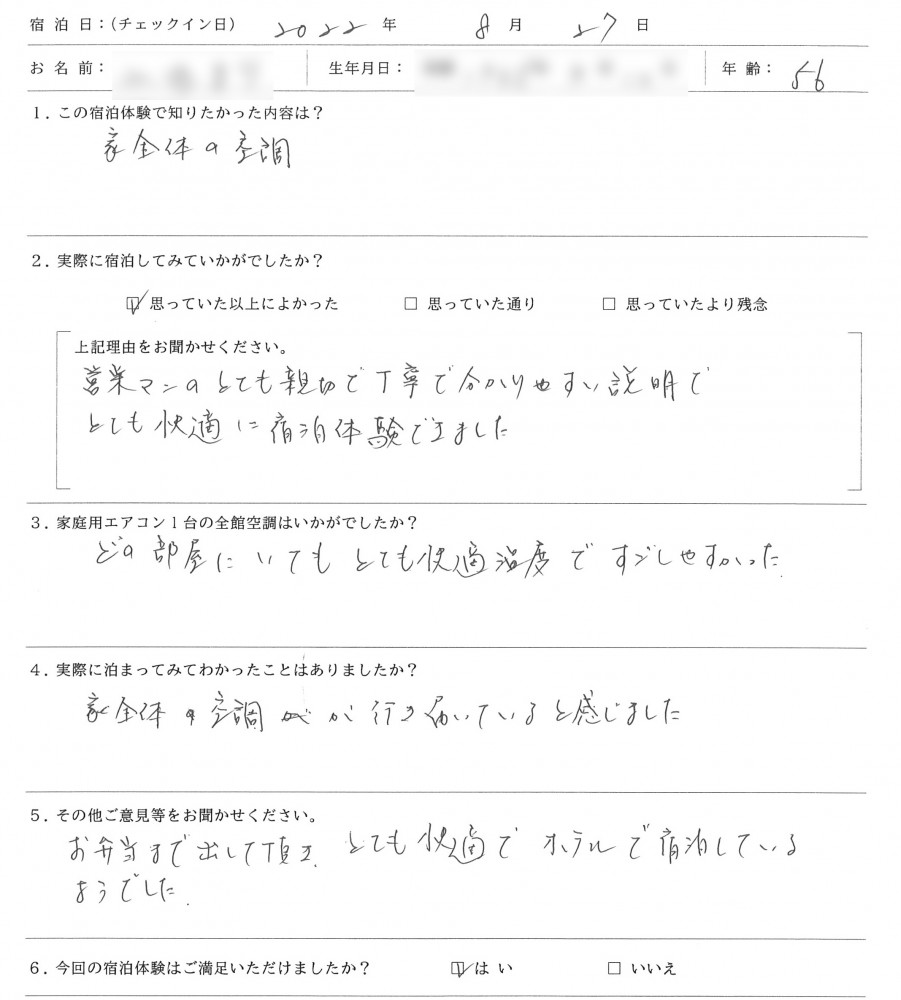 宿泊日:(チェックイン日) 2022年 8月 27日
お名前: 生年月日: 年齢: 56
1. この宿泊体験で知りたかった内容は?
家全体の空調
2. 実際に宿泊してみていかがでしたか?
☑ 思っていた以上によかった □ 思っていた通り □ 思っていたより残念
上記理由をお聞かせください。
営業マンのとても親切で丁寧で分かりやすい説明で
とても快適に宿泊体験できました
3. 家庭用エアコン1台の全館空調はいかがでしたか?
どの部屋にいてもとても快適温度ですごしやすかった.
4. 実際に泊まってみてわかったことはありましたか?
家全体の空調が行き届いていると感じました
5. その他ご意見等をお聞かせください。
お弁当まで出して頂き、とても快適でホテルで宿泊している
ようでした.
6. 今回の宿泊体験はご満足いただけましたか? ☑ はい □ いいえ